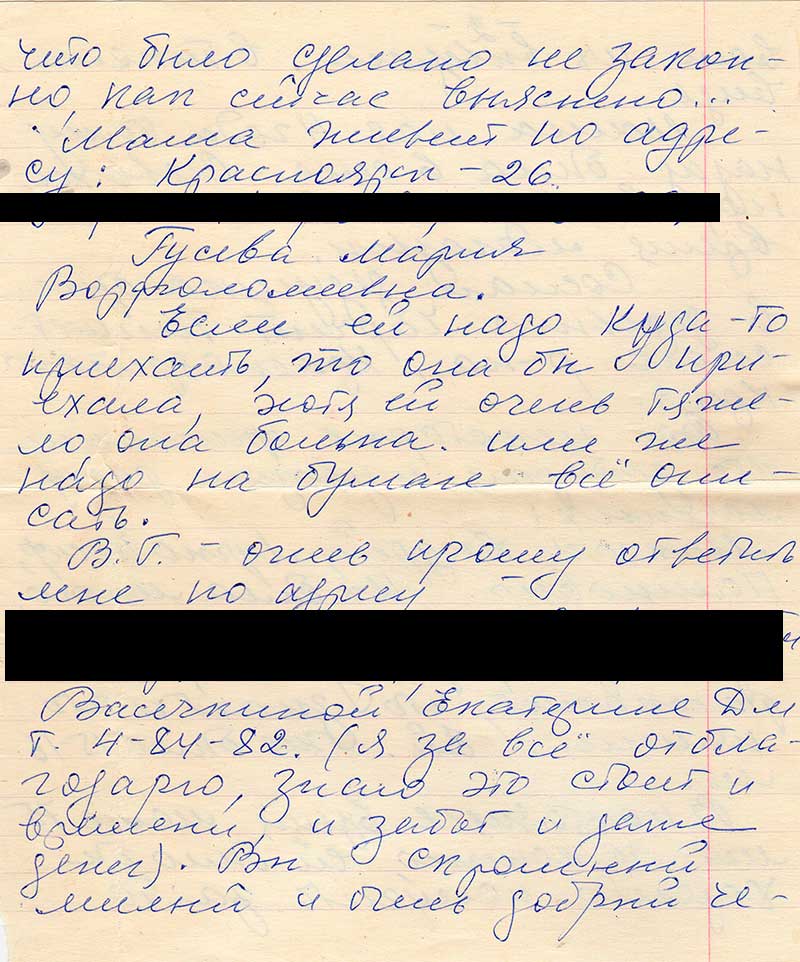 что было сделано не закон-
но, как сейчас выяснено...
Мама живет по адре-
су: Красноярск-26.
Гусева Мария
Ворфоломеевна.
Если ей надо куда-то
приехать, то она бы при-
ехала, хотя ей очень тяже-
ло, она больна. или же
надо на бумаге всё опи-
сать.
В.Г. – очень прошу ответить
мне по адресу –
Васечкиной Екатерине Дм
т. 4-84-82. (я за всё отбла-
годарю, знаю это стоит и
времени, и забот и даже
денег). Вы скромный
милый и очень добрый че-